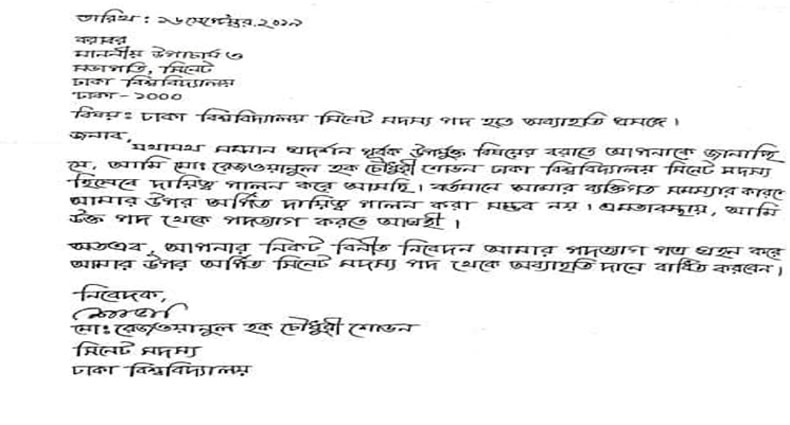 তারিখ : ১৬ সেপ্টেম্বর, ২০১৯
বরাবর
মাননীয় উপাচার্য ও
সভাপতি, সিনেট
ঢাকা বিশ্ববিদ্যালয়
ঢাকা - ১০০০
বিষয়ঃ ঢাকা বিশ্ববিদ্যালয় সিনেট সদস্য পদ হতে অব্যাহতি প্রসঙ্গে।
জনাব,
যথাযথ সম্মান প্রদর্শন পূর্বক উপর্যুক্ত বিষয়ের বরাতে আপনাকে জানাচ্ছি
যে, আমি মোঃ রেজওয়ানুল হক চৌধুরী শোভন ঢাকা বিশ্ববিদ্যালয় সিনেট সদস্য
হিসেবে দায়িত্ব পালন করে আসছি। বর্তমানে আমার ব্যক্তিগত সমস্যার কারণে
আমার উপর অর্পিত দায়িত্ব পালন করা সম্ভব নয়। এমতাবস্থায়, আমি
উক্ত পদ থেকে পদত্যাগ করতে আগ্রহী ।
অতএব, আপনার নিকট বিনীত নিবেদন আমার পদত্যাগ পত্র গ্রহন করে
আমার উপর অর্পিত সিনেট সদস্য পদ থেকে অব্যাহতি দানে বাধিত করবেন।
নিবেদক,
মোঃ রেজওয়ানুল হক চৌধুরী শোভন
সিনেট সদস্য
ঢাকা বিশ্ববিদ্যালয়